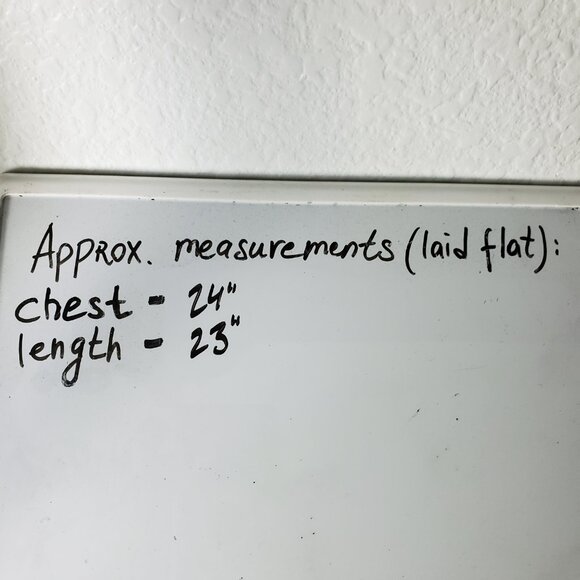 Approx. measurements (laid flat):
chest - 24"
length - 23"